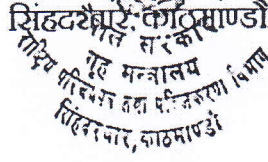 सिंहदरबार, काठमाण्डौ
नेपाल सरकार
गृह मन्त्रालय
राष्ट्रिय परिचयपत्र तथा पञ्जिकरण विभाग
सिंहदरबार, काठमाण्डौ